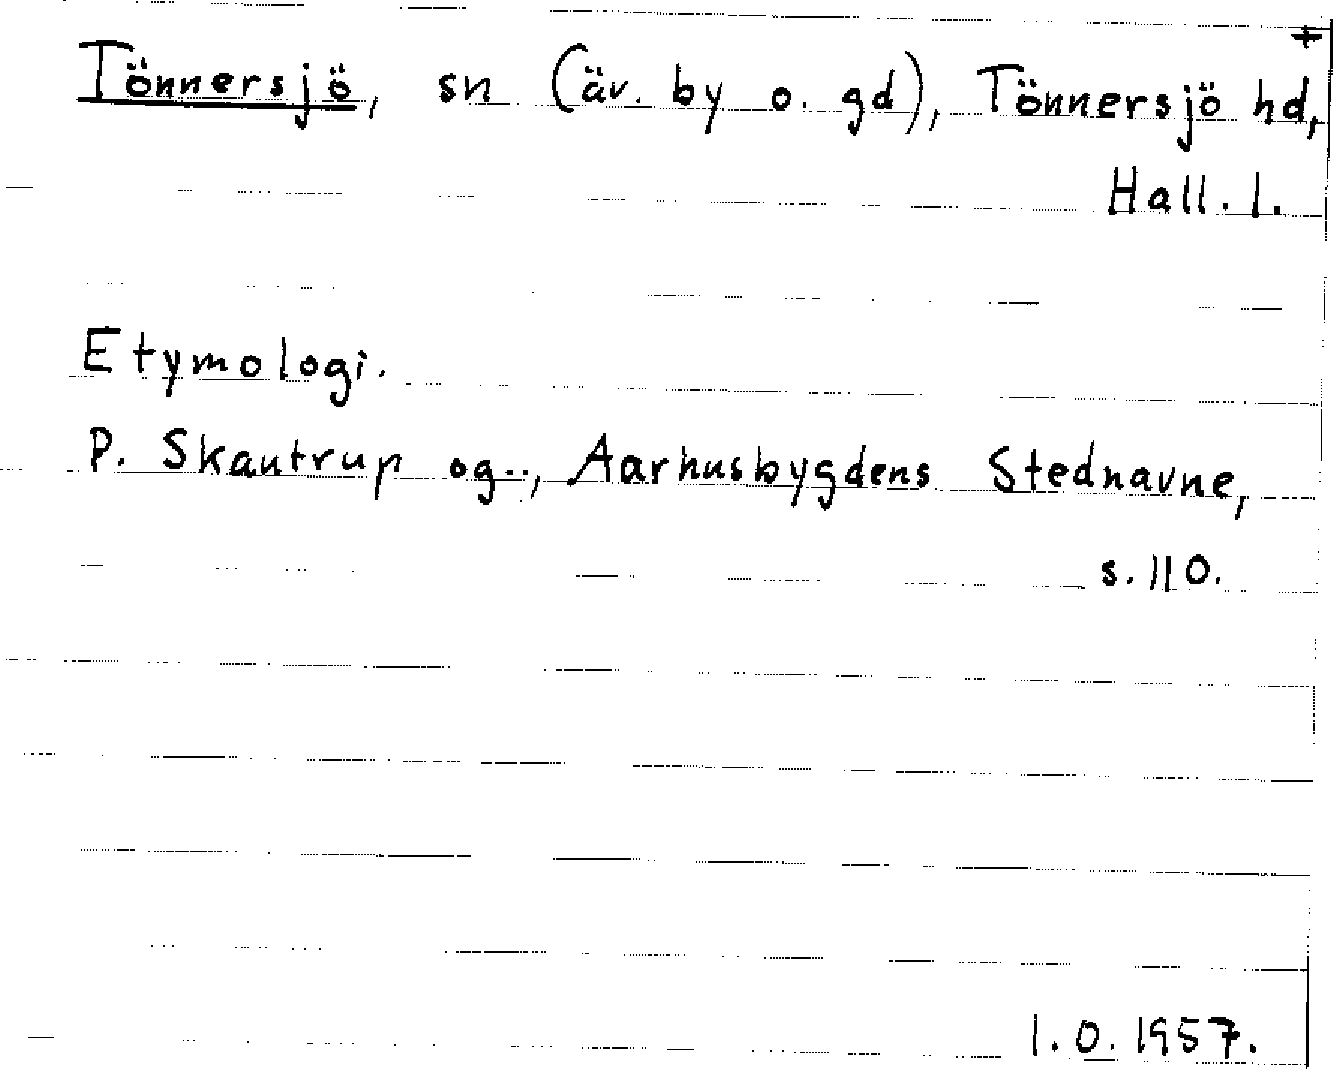 +
Tönnersjö, sn (äv. by o. gd), Tönnersjö hd,
Hall. l.
Etymologi.
P. Skautrup og.., Aarhusbygdens Stednavne,
s. 110.
l. o. 1957.